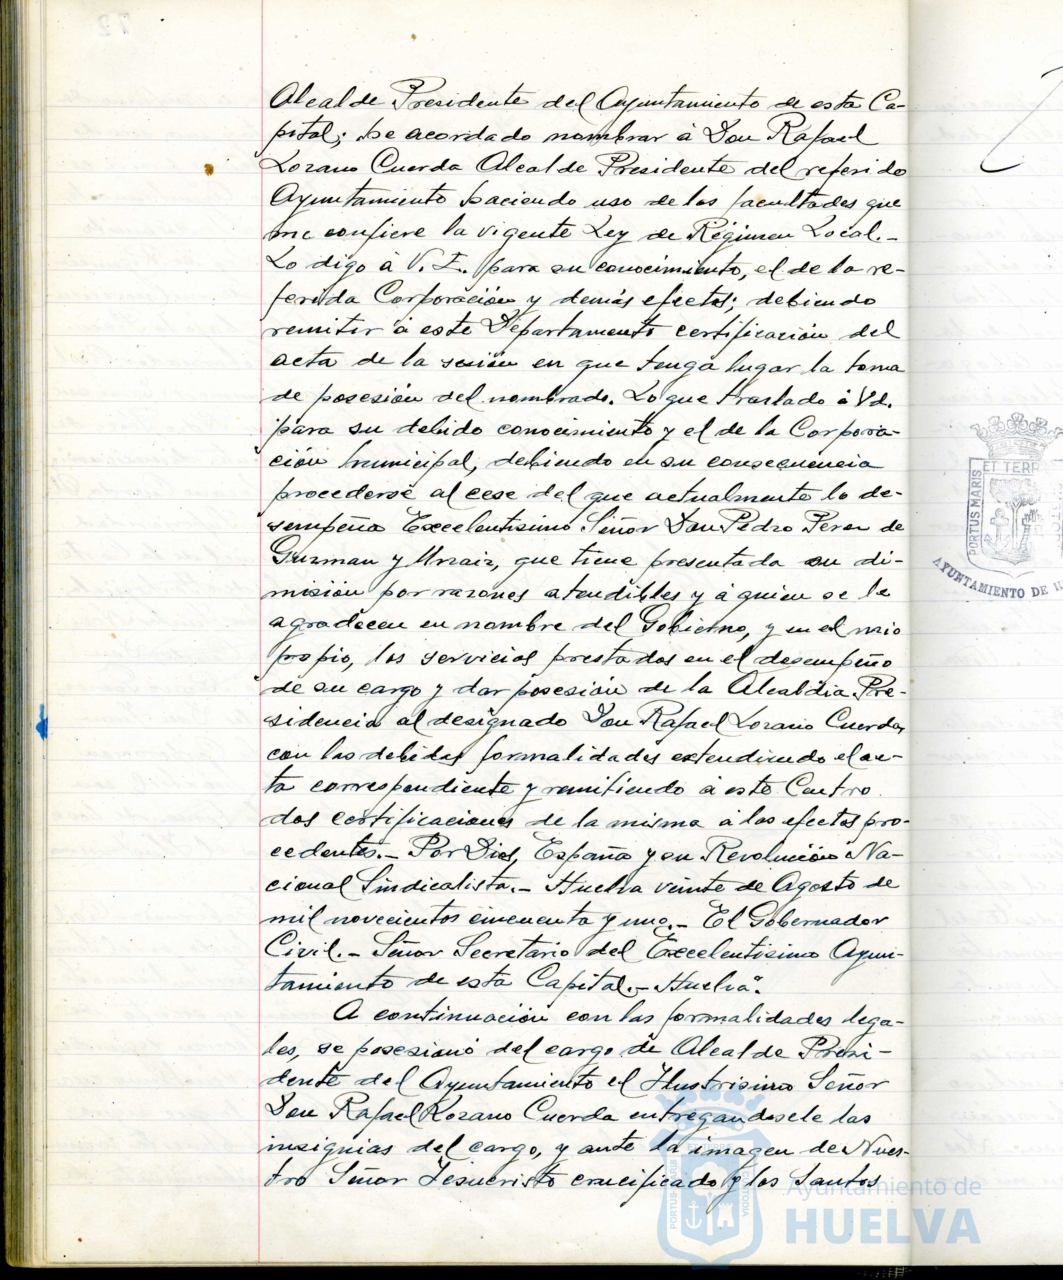 Alcalde Presidente del Ayuntamiento de esta Ca-
pital; he acordado nombrar á Don Rafael
Lozano Cuerda Alcalde Presidente del referido
Ayuntamiento haciendo uso de las facultades que
me confiere la vigente Ley de Régimen Local.-
Lo digo á V. E. para su conocimiento, el de la re-
ferida Corporación y demás efectos; debiendo
remitir á este Departamento certificación del
acta de la sesión en que tenga lugar la toma
de posesión del nombrado. Lo que traslado á Vd.
para su debido conocimiento y el de la Corpora-
ción Municipal, debiendo en su consecuencia
procederse al cese del que actualmente lo de-
sempeña Excelentísimo Señor Don Pedro Perez de
Guzman y Urzaiz, que tiene presentada su di-
misión por razones atendibles y á quien se le
agradecen en nombre del Gobierno, y en el mio
propio, los servicios prestados en el desempeño
de su cargo y dar posesión de la Alcaldia Pre-
sidencia al designado Don Rafael Lozano Cuerda,
con las debidas formalidades extendiendo el ac-
ta correspondiente y remitiendo á este Centro
dos certificaciones de la misma á los efectos pro-
cedentes.- Por Dios, España y su Revolución Na-
cional Sindicalista.- Huelva veinte de Agosto de
mil novecientos cincuenta y uno.- El Gobernador
Civil.- Señor Secretario del Excelentísimo Ayun-
tamiento de esta Capital.- Huelva".
A continuación con las formalidades lega-
les, se posesionó del cargo de Alcalde Presi-
dente del Ayuntamiento el Ilustrisimo Señor
Don Rafael Lozano Cuerda entregandosele las
insignias del cargo, y ante la imagen de Nues-
tro Señor Jesucristo crucificado y los Santos
PORTUS MARIS ET TERR
AYUNTAMIENTO DE H
Ayuntamiento de
HUELVA